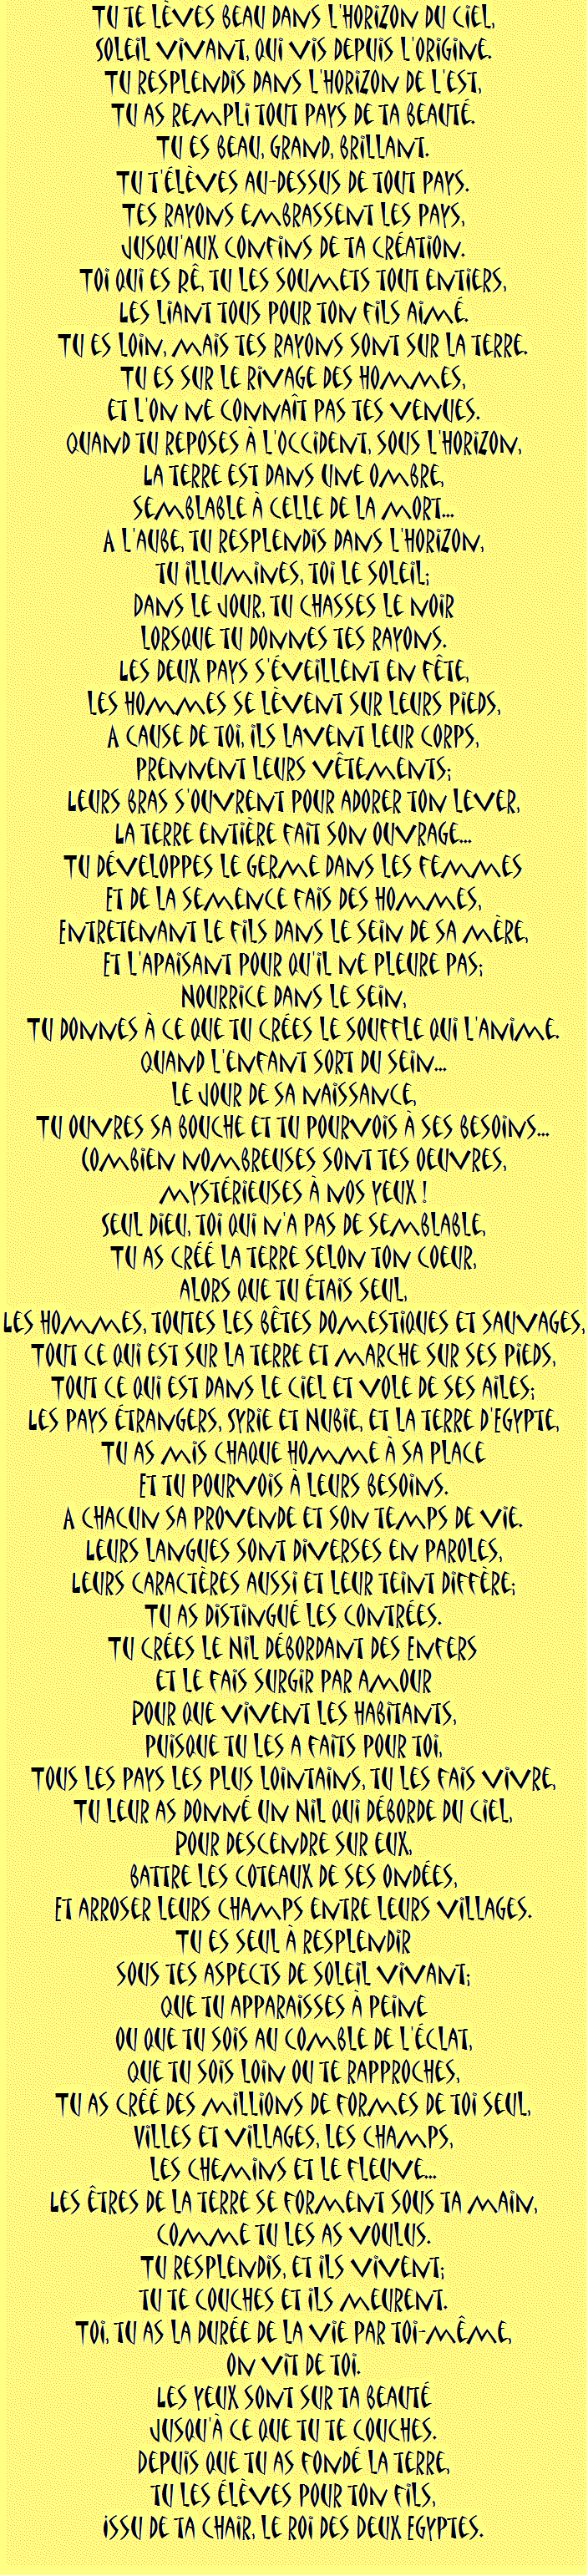 Tu te lèves beau dans l'horizon du ciel,
Soleil vivant, qui vis depuis l'origine.
Tu resplendis dans l'horizon de l'est,
Tu as rempli tout pays de ta beauté.
Tu es beau, grand, brillant.
Tu t'élèves au-dessus de tout pays.
Tes rayons embrassent les pays,
Jusqu'aux confins de ta création.
Toi qui es Rê, tu les soumets tout entiers,
Les liant tous pour ton fils aimé.
Tu es loin, mais tes rayons sont sur la terre.
Tu es sur le rivage des hommes,
Et l'on ne connaît pas tes venues.
Quand tu reposes à l'occident, sous l'horizon,
La terre est dans une ombre,
Semblable à celle de la mort...
A l'aube, tu resplendis dans l'horizon,
Tu illumines, toi le soleil;
Dans le jour, tu chasses le noir
Lorsque tu donnes tes rayons.
Les deux pays s'éveillent en fête,
Les hommes se lèvent sur leurs pieds,
A cause de toi, ils lavent leur corps,
Prennent leurs vêtements;
Leurs bras s'ouvrent pour adorer ton lever,
La terre entière fait son ouvrage...
Tu développes le germe dans les femmes
Et de la semence fais des hommes,
Entretenant le fils dans le sein de sa mère,
Et l'apaisant pour qu'il ne pleure pas;
Nourrice dans le sein,
Tu donnes à ce que tu crées le souffle qui l'anime.
Quand l'enfant sort du sein...
Le jour de sa naissance,
Tu ouvres sa bouche et tu pourvois à ses besoins...
Combien nombreuses sont tes oeuvres,
Mystérieuses à nos yeux !
Seul dieu, toi qui n'a pas de semblable,
Tu as créé la terre selon ton coeur,
Alors que tu étais seul,
Les hommes, toutes les bêtes domestiques et sauvages,
Tout ce qui est sur la terre et marche sur ses pieds,
Tout ce qui est dans le ciel et vole de ses ailes;
Les pays étrangers, Syrie et Nubie, et la terre d'Egypte,
Tu as mis chaque homme à sa place
Et tu pourvois à leurs besoins.
A chacun sa provende et son temps de vie.
Leurs langues sont diverses en paroles,
Leurs caractères aussi et leur teint diffère;
Tu as distingué les contrées.
Tu crées le Nil débordant des Enfers
Et le fais surgir par amour
Pour que vivent les habitants,
Puisque tu les a faits pour toi,
Tous les pays les plus lointains, tu les fais vivre,
Tu leur as donné un Nil qui déborde du ciel,
Pour descendre sur eux,
Battre les coteaux de ses ondées,
Et arroser leurs champs entre leurs villages.
Tu es seul à resplendir
Sous tes aspects de soleil vivant;
Que tu apparaisses à peine
Ou que tu sois au comble de l'éclat,
Que tu sois loin ou te rapproches,
Tu as créé des millions de formes de toi seul,
Villes et villages, les champs,
Les chemins et le fleuve...
Les êtres de la terre se forment sous ta main,
Comme tu les as voulus.
Tu resplendis, et ils vivent;
Tu te couches et ils meurent.
Toi, tu as la durée de la vie par toi-même,
On vit de toi.
Les yeux sont sur ta beauté
Jusqu'à ce que tu te couches.
Depuis que tu as fondé la terre,
Tu les élèves pour ton fils,
Issu de ta chair, le roi des deux Egyptes.